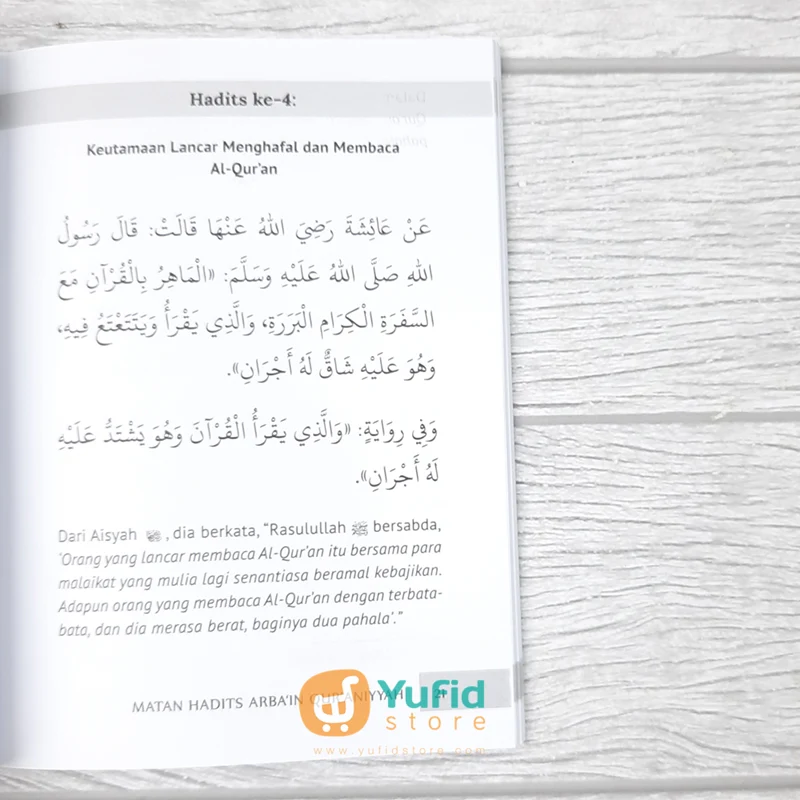 Hadits ke-4:
Keutamaan Lancar Menghafal dan Membaca
Al-Qur'an
عَنْ عَائِشَةَ رَضِيَ اللهُ عَنْهَا قَالَتْ: قَالَ رَسُولُ
اللهِ صَلَّى اللهُ عَلَيْهِ وَسَلَّمَ: «الْمَاهِرُ بِالْقُرْآنِ مَعَ
السَّفَرَةِ الْكِرَامِ الْبَرَرَةِ، وَالَّذِي يَقْرَأُ وَيَتَتَعْتَعُ فِيهِ،
وَهُوَ عَلَيْهِ شَاقٌّ لَهُ أَجْرَانِ».
وَفِي رِوَايَةٍ: «وَالَّذِي يَقْرَأُ الْقُرْآنَ وَهُوَ يَشْتَدُّ عَلَيْهِ
لَهُ أَجْرَانِ».
Dari Aisyah , dia berkata, "Rasulullah ﷺ bersabda,
'Orang yang lancar membaca Al-Qur'an itu bersama para
malaikat yang mulia lagi senantiasa beramal kebajikan.
Adapun orang yang membaca Al-Qur'an dengan terbata-
bata, dan dia merasa berat, baginya dua pahala'."
MATAN HADITS ARBA'IN QUR'ANIYYAH 21
Yufid
store
www.yufidstore.com